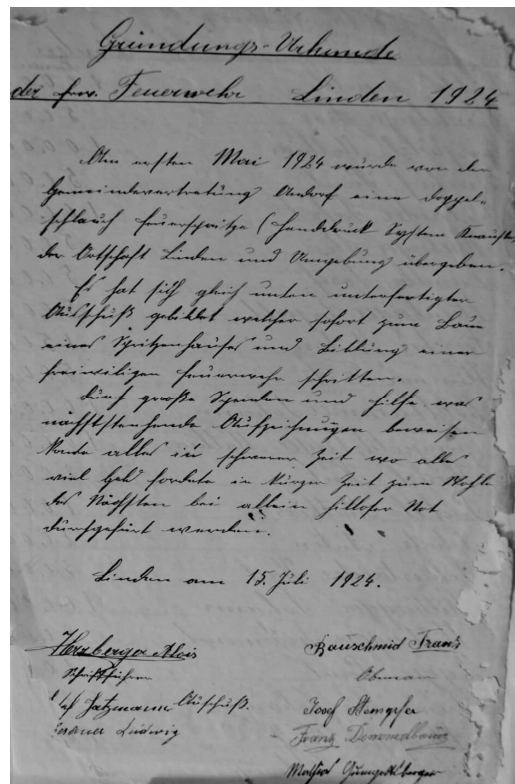 Gründungs-Urkunde
der frw. Feuerwehr Linden 1924
Am ersten Mai 1924 wurde von der
Gemeindevertretung Andorf eine Doppel-
schlauch Feuerspritze (Handdruck System
der Ortschaft Linden und Umgebung übergeben.
Es hat sich gleich unten unterfertigter
Ausschuß gebildet welcher sofort zum Baue
eines Spritzenhauses und Bildung einer
freiwilligen Feuerwehr schritten.
Durch große Spenden und Hilfe was
nächststehende Aufzeichnungen beweisen
konte alles in schwerer Zeit wo alles
viel Geld fordete in kurzer Zeit zum Wohle
des Nächsten bei allein hilloser Not
durchgefürt werden.
Linden am 15. Juli 1924.
Herzberger Alois Bauschmid Franz
Schriftführer Obmann
Ausschuß. Josef
Ludwig Franz